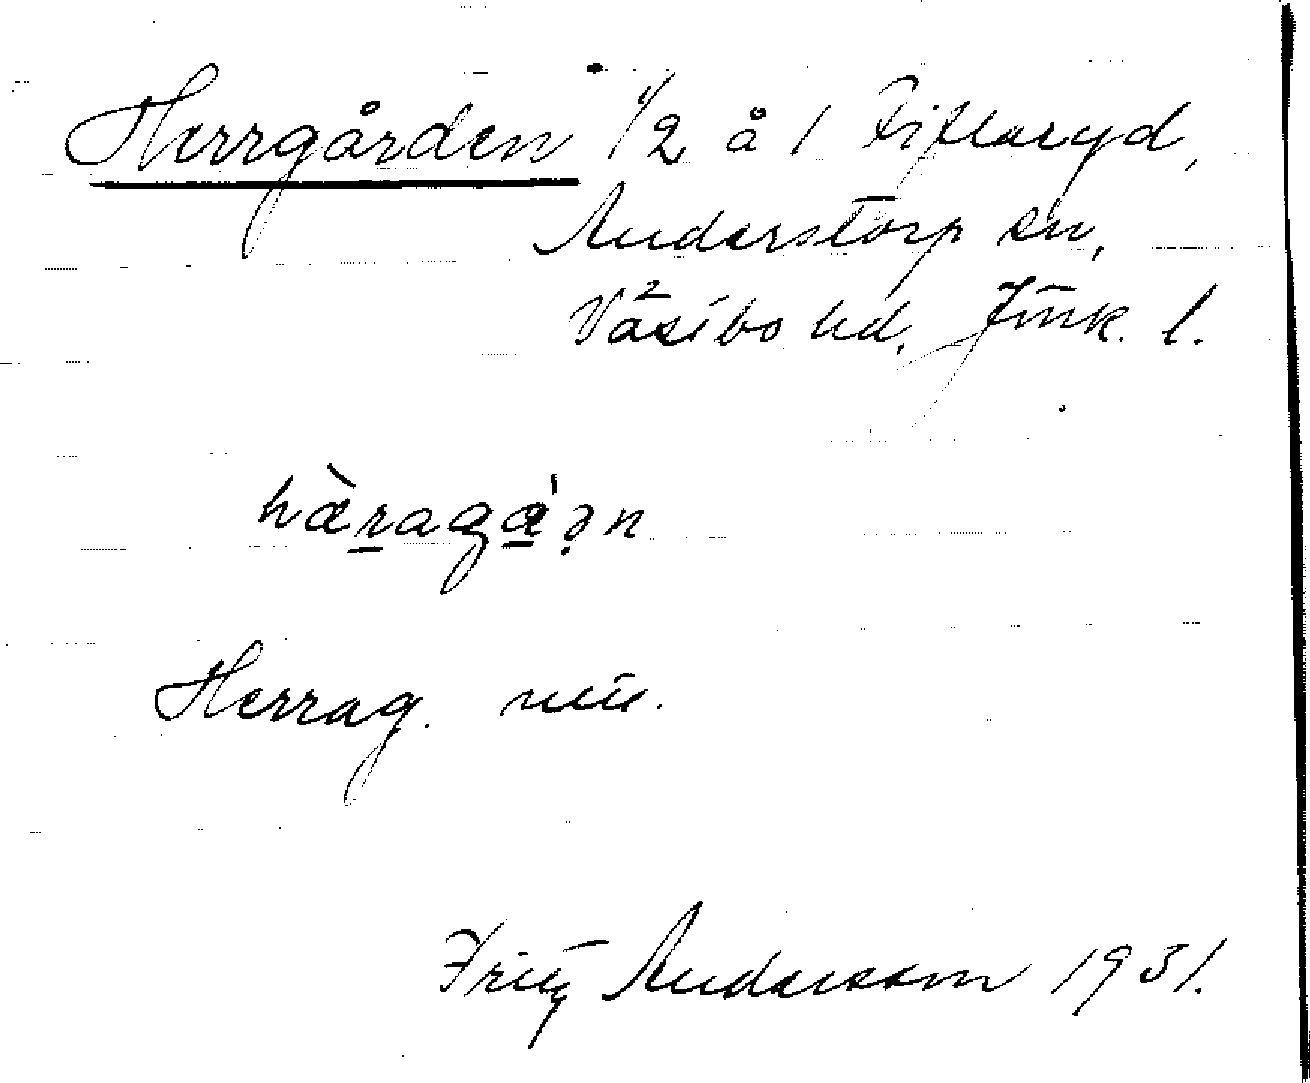 Herrgården 1/2 å 1 Fifflaryd,
Anderstorp sn,
Västbo hd, Jönk. l.
hæ̀ragæ̀ən
Herrag.
Fritz Andersson 1931.